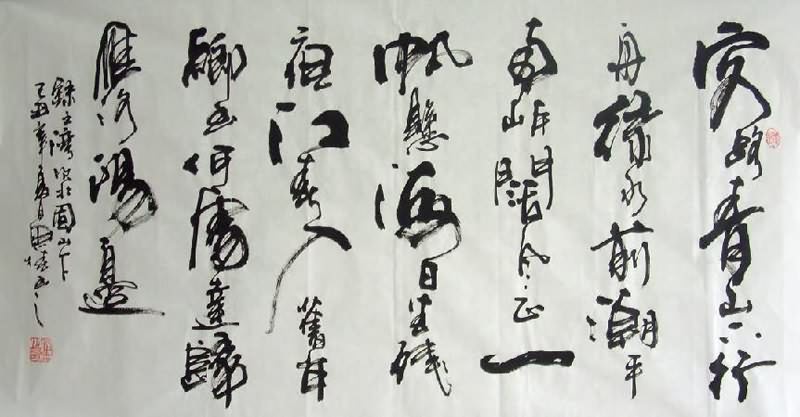 客路青山下行
舟綠水前潮平
兩岸闊風正一
帆懸海日生殘
夜江春入舊年
鄉書何處達歸
雁洛陽邊
錄王灣次北固山下
己丑年夏月書之